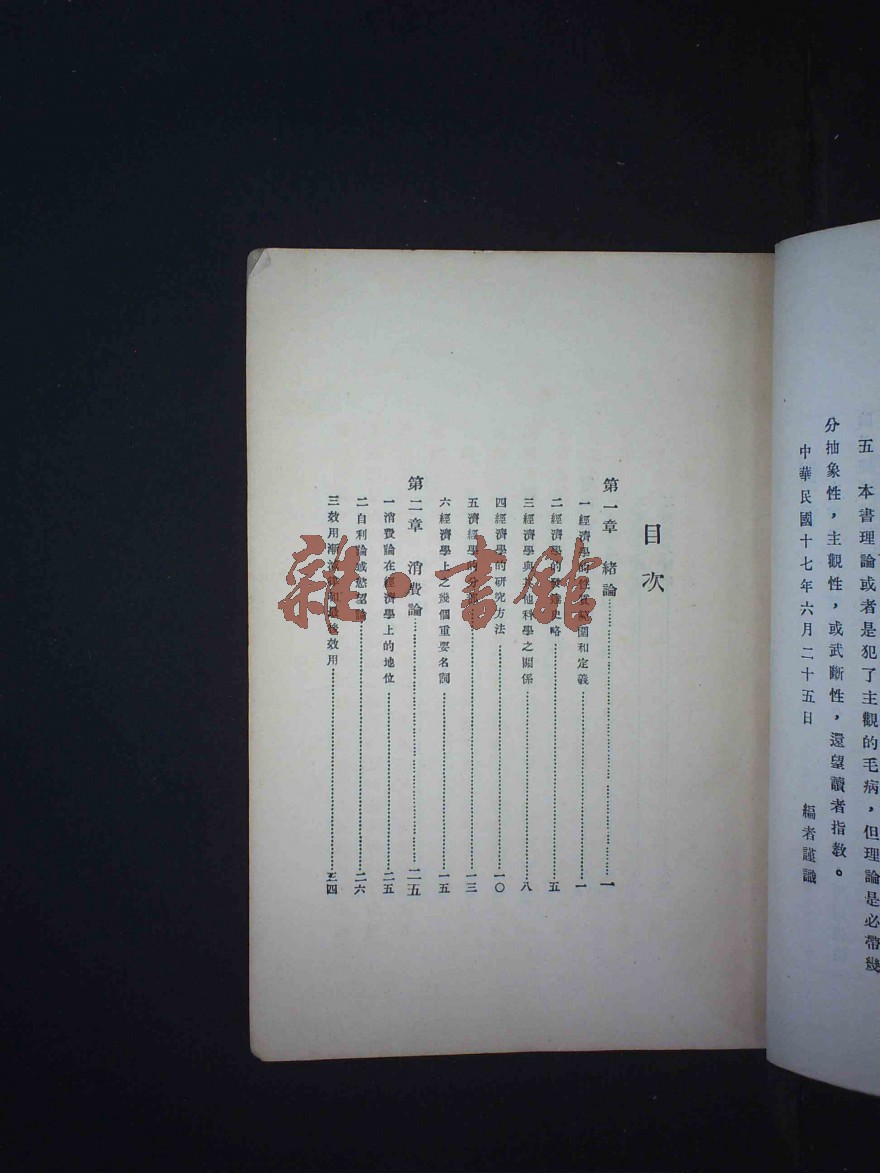 五　本書理論或者是犯了主觀的毛病，但理論是必帶幾
分抽象性，主觀性，或武斷性，還望讀者指教。
中華民國十七年六月二十五日　編者謹識
目次
第一章　緒論……一
一經濟學的性質範圍和定義……一
二經濟學的發達史略……五
三經濟學與其他科學之關係……八
四經濟學的研究方法……一〇
五濟經學的分部……一三
六經濟學上之幾個重要名詞……一五
第二章　消費論……二五
一消費論在經濟學上的地位……二五
二自利論或慾望論……二六
三效用漸減律和最後效用……三四
雜·書館